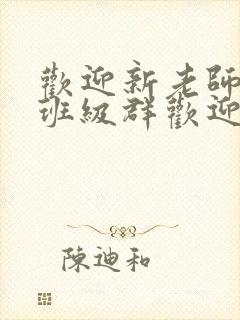 歡迎新老師
班級群歡迎
陳迪和